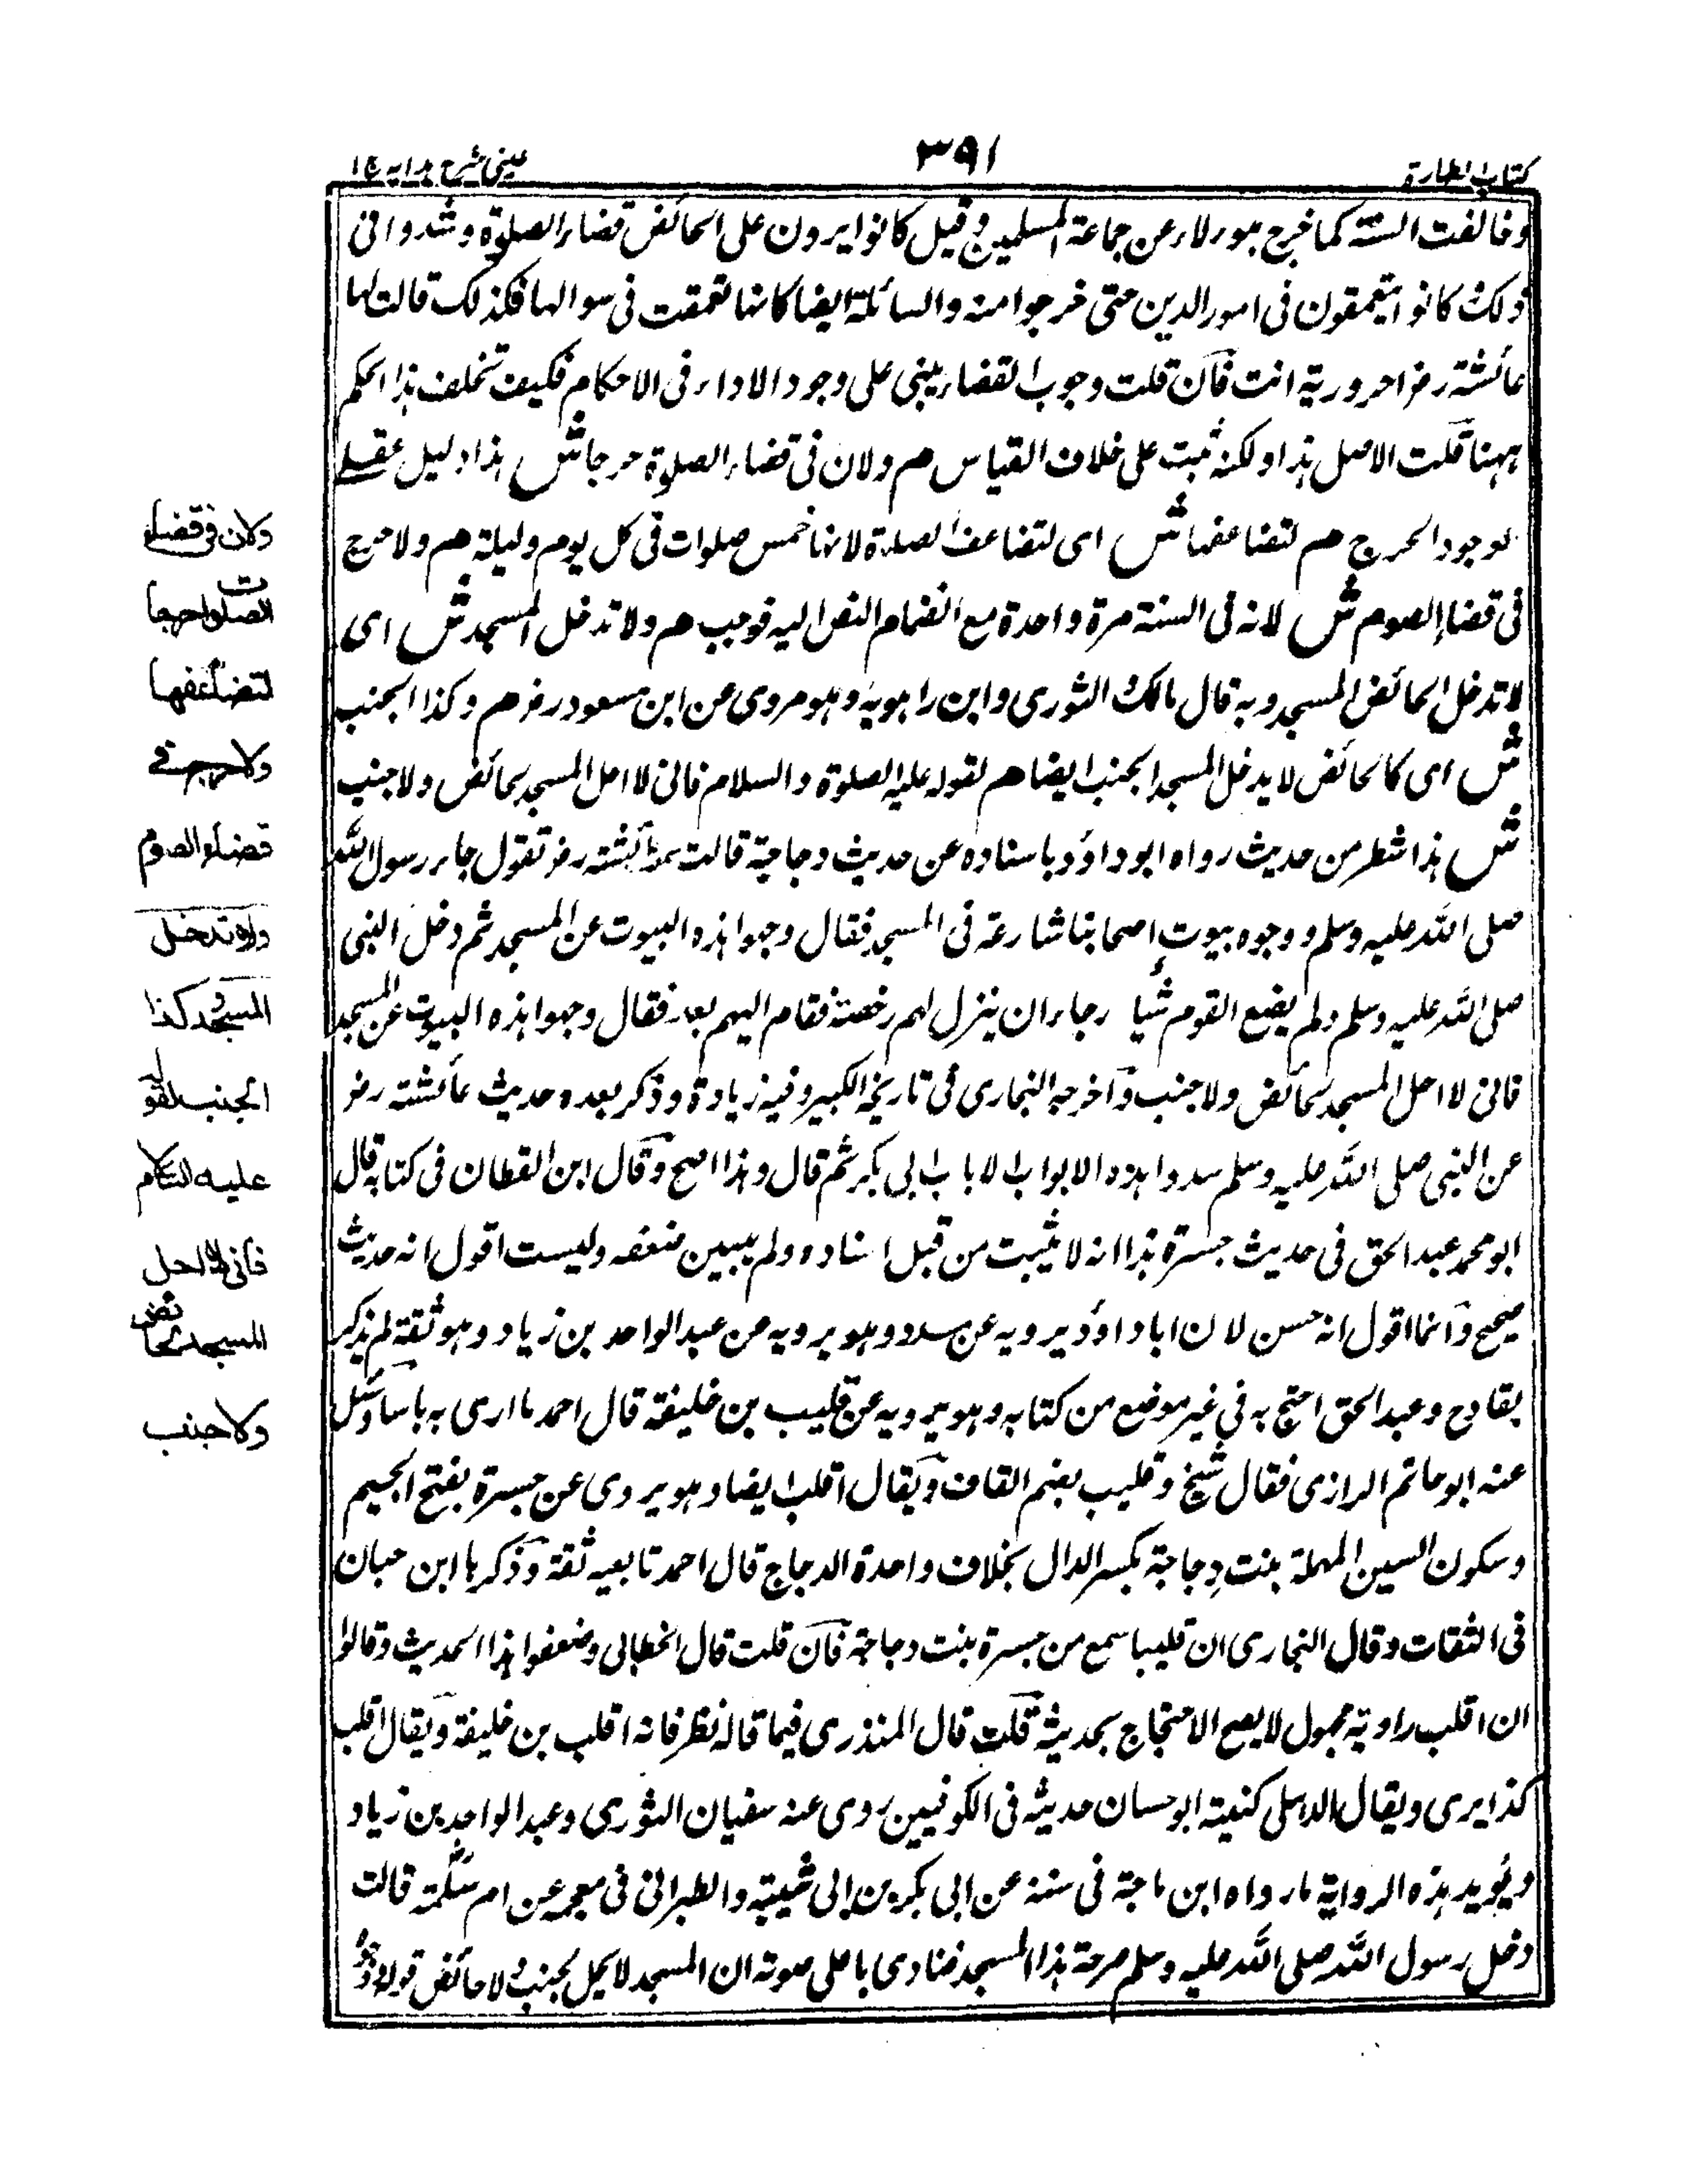 كتاب الطهارة
٣٩١
عینی شرح ہدایہ ج ١
وخالفت السنة كما خرج هورلاء عن جماعة المسلمين وقيل كانوا يرون على الحائض قضاء الصلوة وشدوا فى
ذلك كانوا يتعمقون فى امور الدين حتى خرجوا منه والسائلة ايضا كانها تعمقت فى سوالها فكذلك قالت لها
عائشة رضـ احرورية انت فان قلت وجوب القضاء يبنى على وجود الاداء فى الاحكام فكيف تخلف هذا الحكم
ههنا قلت الاصل هذا ولكنه ثبت على خلاف القياس م ولان فى قضاء الصلوة حرجا ش هذا دليل عقلى
لوجود الحرج م لتضاعفها ش اى لتضاعف الصلاة لانها خمس صلوات فى كل يوم وليلة م ولا حرج
فى قضاء الصوم ش لانه فى السنة مرة واحدة مع انضمام النص اليه فوجب م ولا تدخل المسجد ش اى
لا تدخل الحائض المسجد وبه قال مالك الثورى وابن راهويه وهو مروى عن ابن مسعود رضـ م وكذا الجنب
ش اى كالحائض لا يدخل المسجد الجنب ايضا م لقوله عليه الصلوة والسلام فانى لا احل المسجد لحائض ولا جنب
ش هذا شطر من حديث رواه ابو داؤد باسناده عن حديث دجاجة قالت سمعت عائشة رضـ تقول جاء رسول الله
صلى الله عليه وسلم ووجوه بيوت اصحابنا شارعة فى المسجد فقال وجهوا هذه البيوت عن المسجد ثم دخل النبى
صلى الله عليه وسلم ولم يضع القوم شيا رجاء ان ينزل لهم رخصة فقام اليهم بعد فقال وجهوا هذه البيوت عن المسجد
فانى لا احل المسجد لحائض ولا جنب واخرجه البخارى فى تاريخه الكبير وفيه زيادة وذكر بعده حديث عائشة رضـ
عن النبى صلى الله عليه وسلم سدوا هذه الابواب الا باب ابى بكر ثم قال وهذا اصح وقال ابن القطان فى كتابه قال
ابو محمد عبد الحق فى حديث جسرة هذا انه لا يثبت من قبل اسناده ولم يبين ضعفه وليست اقول انه حديث
صحيح وانما اقول انه حسن لان ابا داؤد يرويه عن مسدد وهو يرويه عن عبد الواحد بن زياد وهو ثقة لم يذكر
بقادح وعبد الحق احتج به فى غير موضع من كتابه وهو يرويه عن قليب بن خليفة قال احمد ما ارى به باسا وسئل
عنه ابو حاتم الرازى فقال شيخ وقليب بضم القاف ويقال اقلب ايضا وهو يروى عن جسرة بفتح الجيم
وسكون السين المهملة بنت دجاجة بكسر الدال بخلاف واحدة الدجاج قال احمد تابعيه ثقة وذكرها ابن حبان
فى الثقات وقال البخارى ان قليبا سمع من جسرة بنت دجاجة فان قلت قال الخطابى وضعفوا هذا الحديث وقالوا
ان اقلب راويه مجهول لا يصح الاحتجاج بحديثه قلت قال المنذرى فيما قاله نظر فانه اقلب بن خليفة ويقال اقلب
كذا يرى ويقال الدهلى كنيته ابو حسان حديثه فى الكوفيين روى عنه سفيان الثورى وعبد الواحد بن زياد
ويؤيد هذه الرواية ما رواه ابن ماجة فى سننه عن ابى بكر بن ابى شيبه والطبرانى فى معجمه عن ام سلمة قالت
دخل رسول الله صلى الله عليه وسلم صرحة هذا المسجد فنادى باعلى صوته ان المسجد لا يحل لجنب ولا حائض قوله
ولان فى قضاء
الصلوات حرجا
لتضاعفها
ولا حرج فى
قضاء الصوم
ولا تدخل
المسجد وكذا
الجنب لقوله
عليه السلام
فانى لا احل
المسجد لحائض
ولا جنب